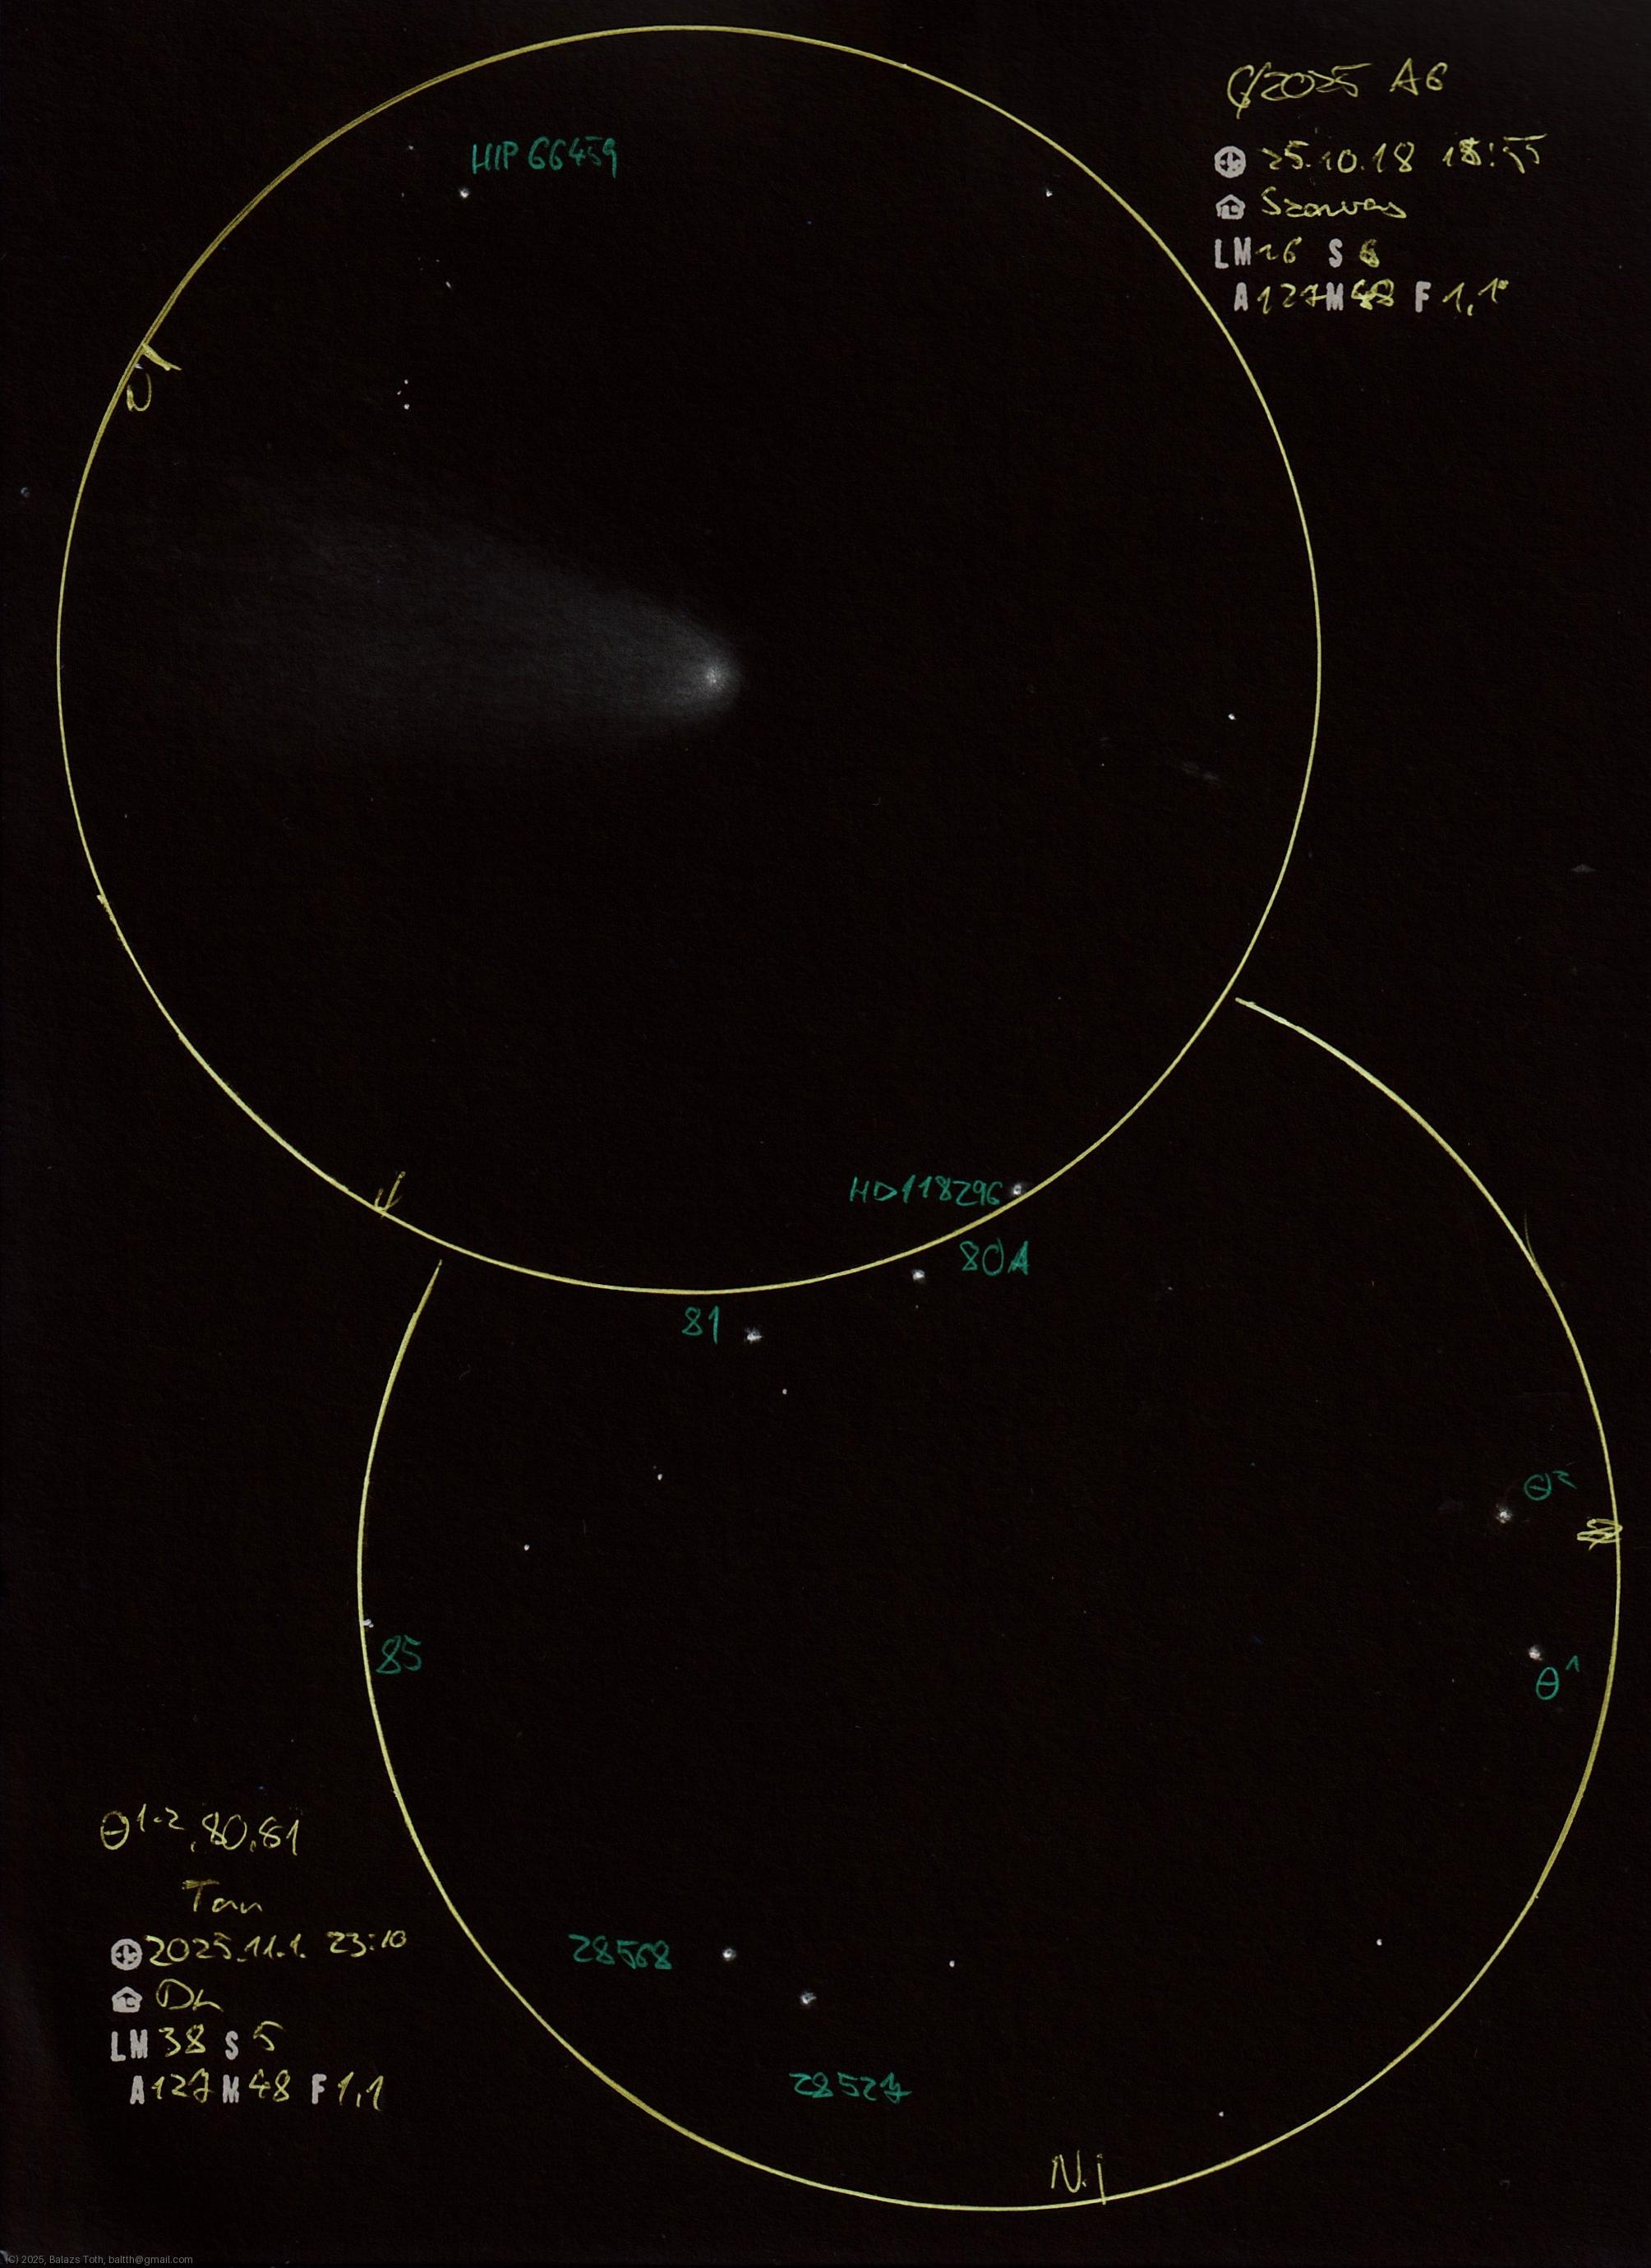 C/2025 A6
25.10.18 18:55
Szarvas
LM 16 S 6
A 127 M 48 F 1,1°
HIP 66459
N
HD118296
80A
81
θ²
85
θ¹
θ1-2, 80, 81
Tau
2025.11.1. 23:10
LM 38 S 5
A 127 M 48 F 1,1
28568
28527
N
(C) 2025, Balazs Toth, baltth@gmail.com